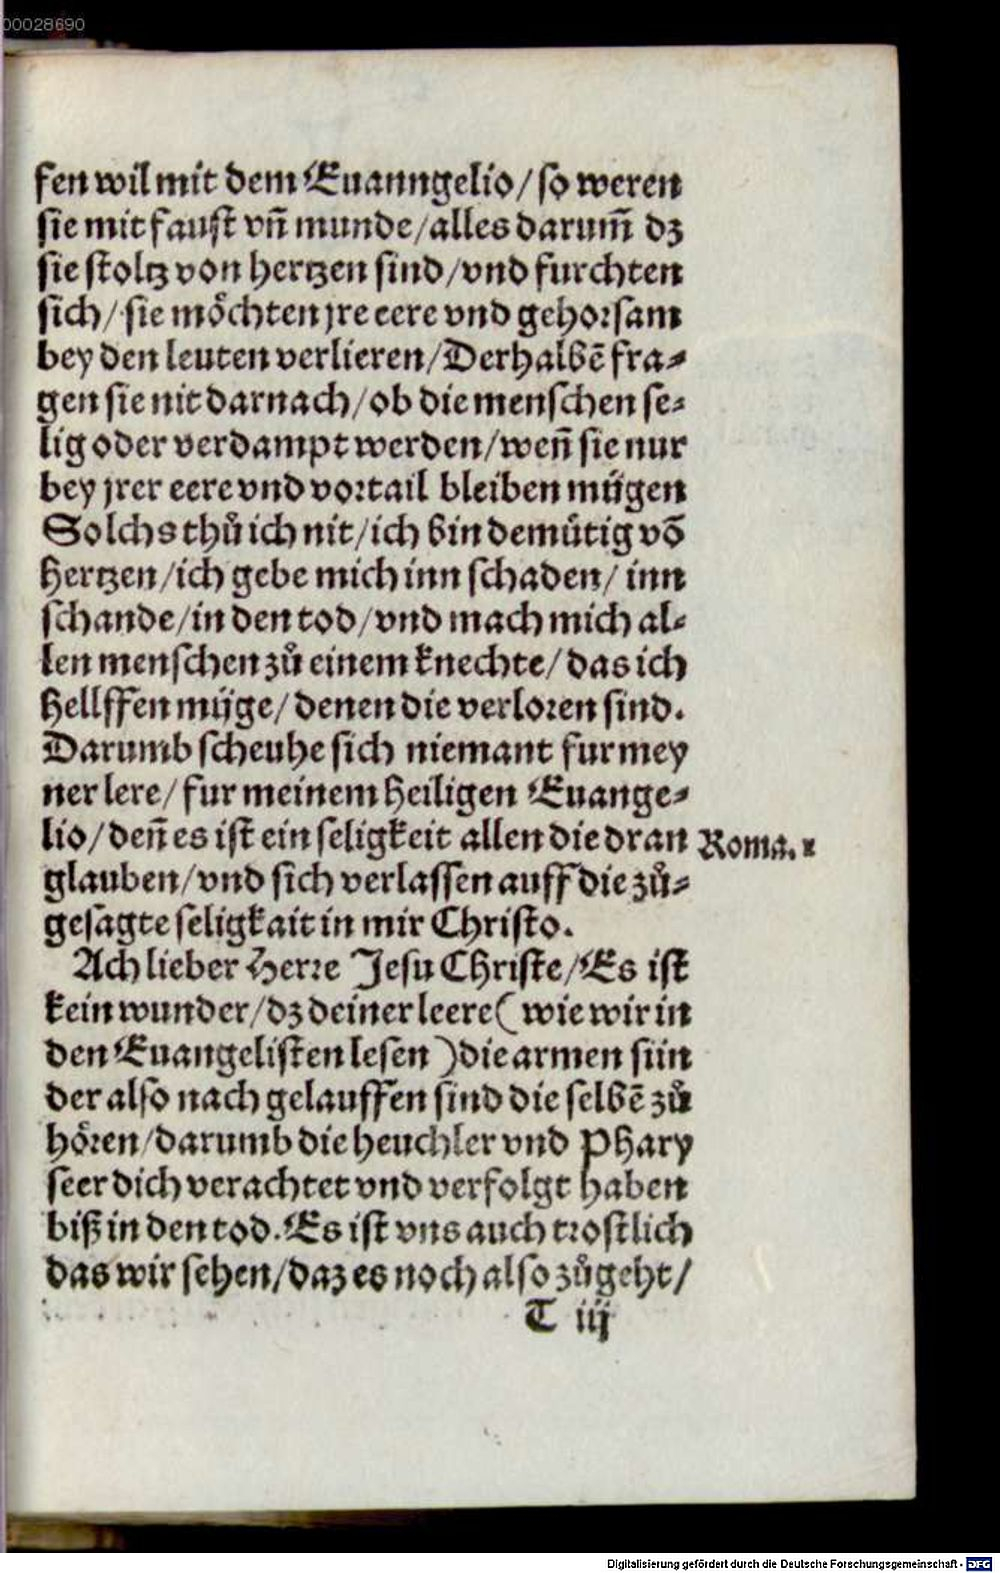 00028690
fen wil mit dem Euanngelio / so weren
sie mit faust vñ munde / alles darum̃ dz
sie stoltz von hertzen sind / vnd furchten
sich / sie möchten jre eere vnd gehorsam
bey den leuten verlieren / Derhalbẽ fra⸗
gen sie nit darnach / ob die menschen se⸗
lig oder verdampt werden / weñ sie nur
bey jrer eere vnd vortail bleiben mügen
Solchs thů ich nit / ich bin demütig võ
hertzen / ich gebe mich inn schaden / inn
schande / in den tod / vnd mach mich al⸗
len menschen zů einem knechte / das ich
hellffen müge / denen die verloren sind.
Darumb scheuhe sich niemant fur mey
ner lere / fur meinem heiligen Euange⸗
lio / deñ es ist ein seligkeit allen die dran
Roma. 1
glauben / vnd sich verlassen auff die zů⸗
gesagte seligkait in mir Christo.
Ach lieber Herre Jesu Christe / Es ist
kein wunder / dz deiner leere ( wie wir in
den Euangelisten lesen ) die armen sün
der also nach gelauffen sind die selbẽ zů
hören / darumb die heuchler vnd Phary
seer dich verachtet vnd verfolgt haben
biß in den tod. Es ist vns auch trostlich
das wir sehen / daz es noch also zůgeht /
T iij
Digitalisierung gefördert durch die Deutsche Forschungsgemeinschaft - DFG